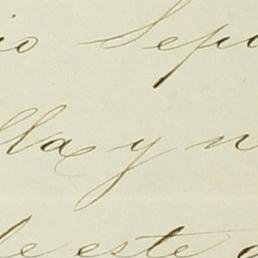 io Sepu
lla y n
le este a